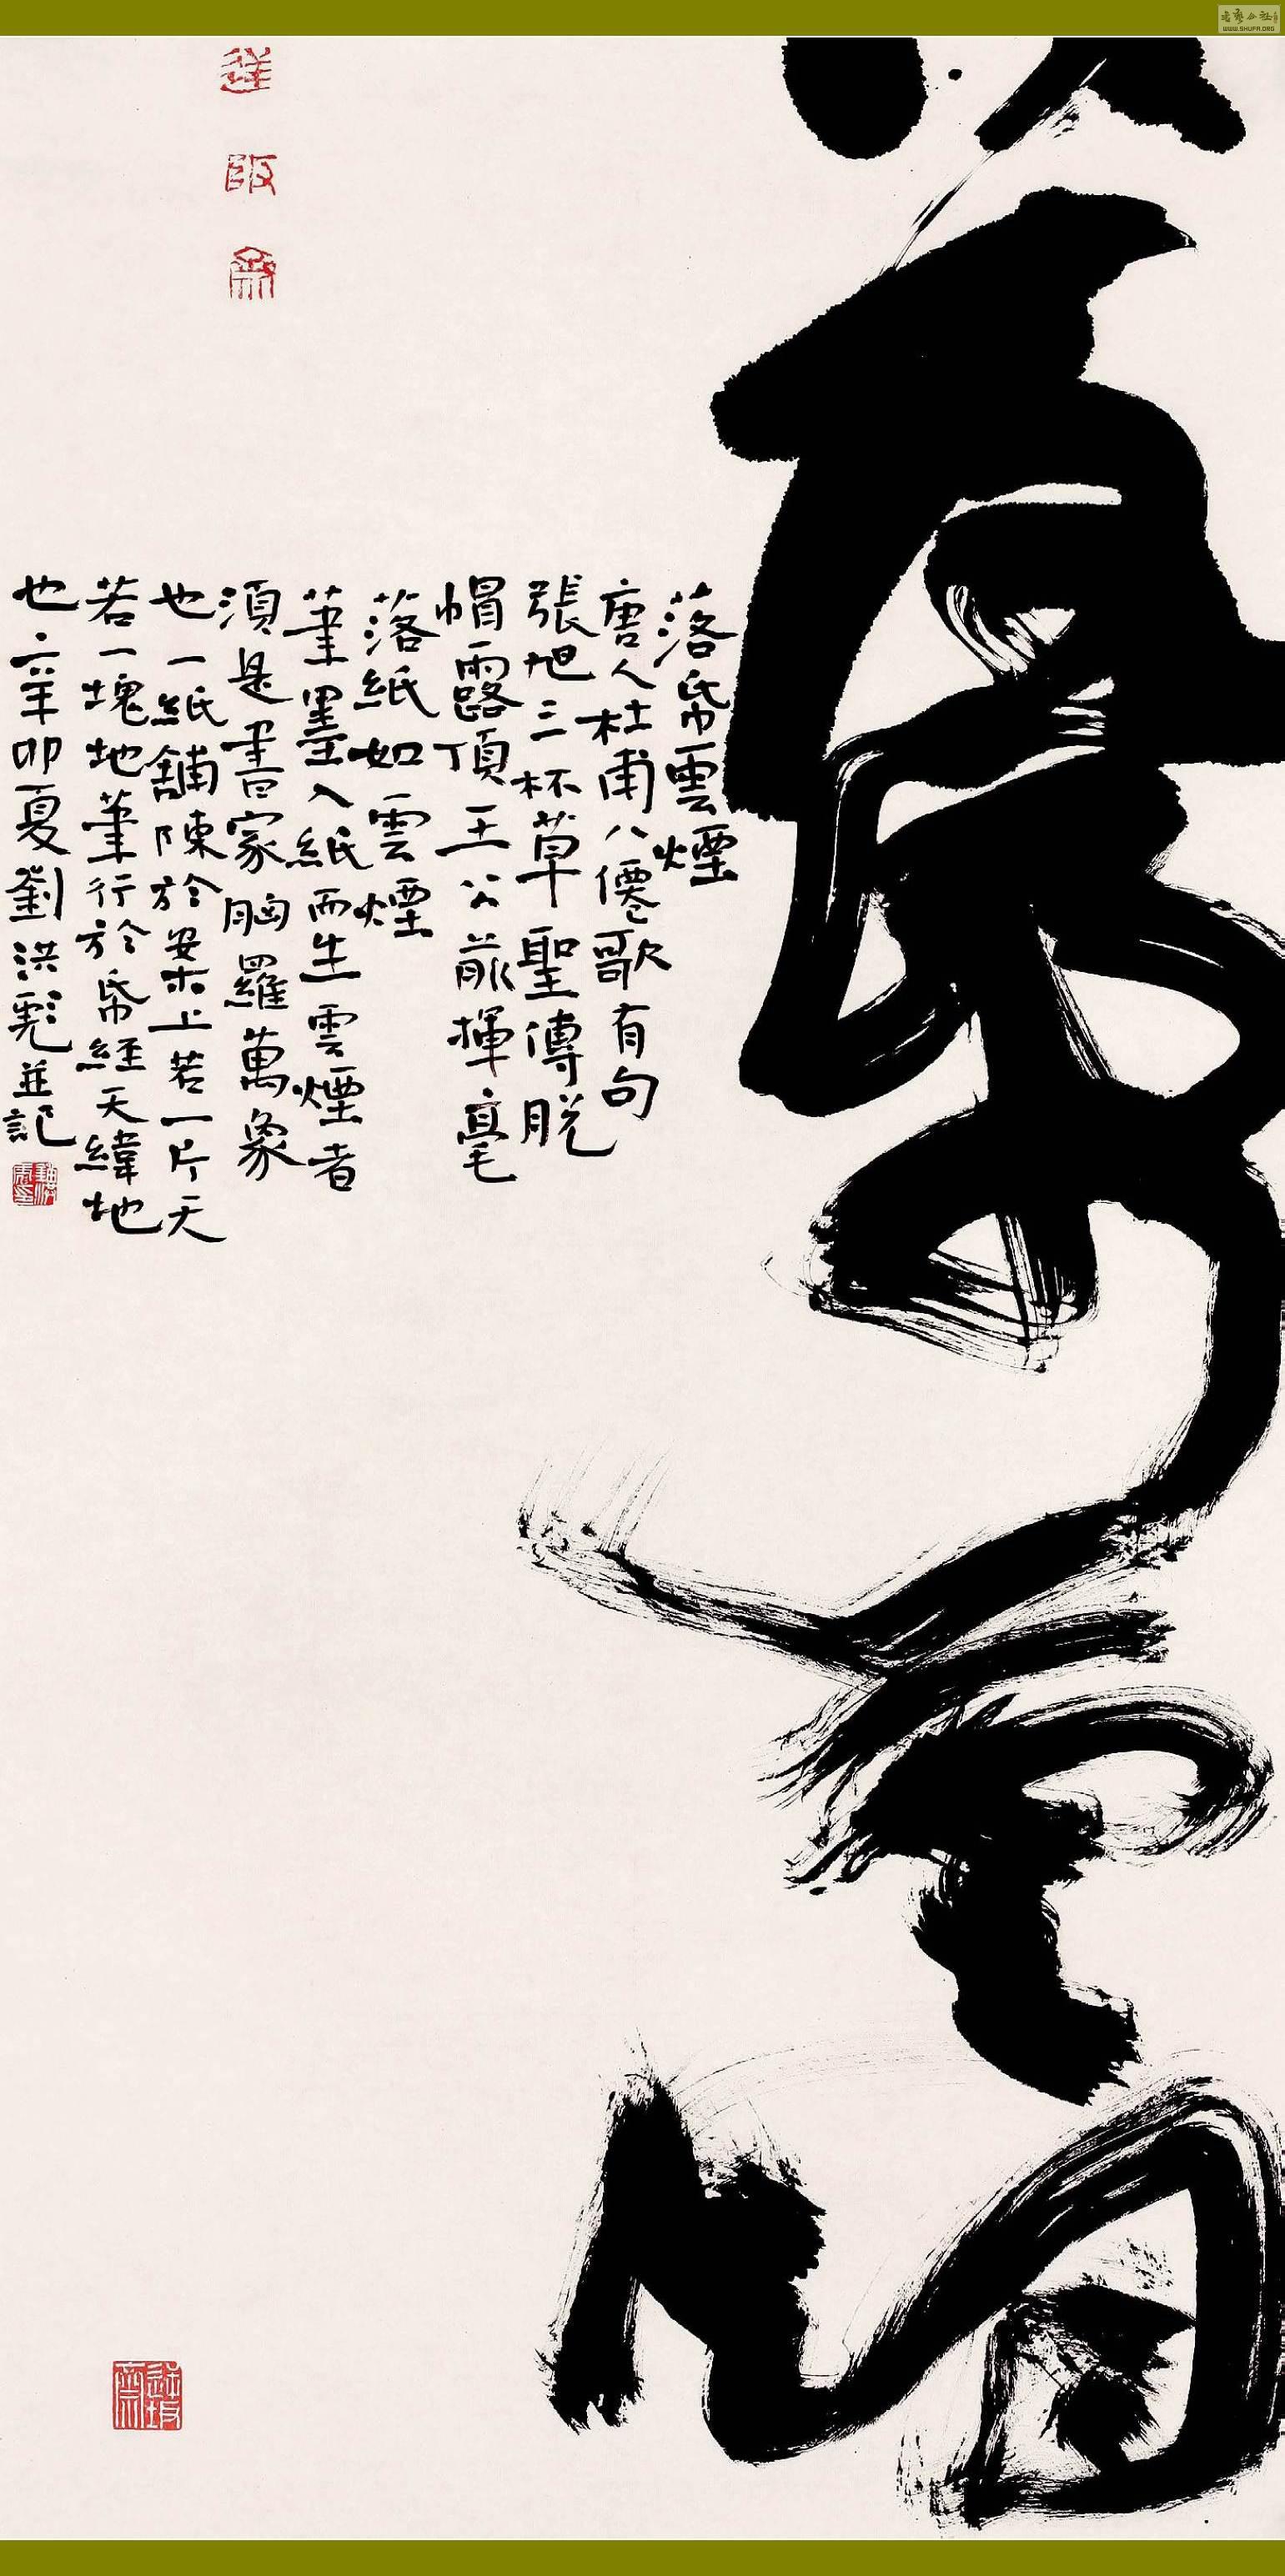 落帋雲煙
落帋雲煙
唐人杜甫八僊歌有句
張旭三杯草聖傳脫
帽露頂王公前揮毫
落紙如雲煙
筆墨入紙而生雲煙者
須是書家胸羅萬象
也一紙鋪陳於案上若一片天
若一塊地筆行於帋經天緯地
也辛卯夏劉洪彪並記
WWW.SHUFA.ORG